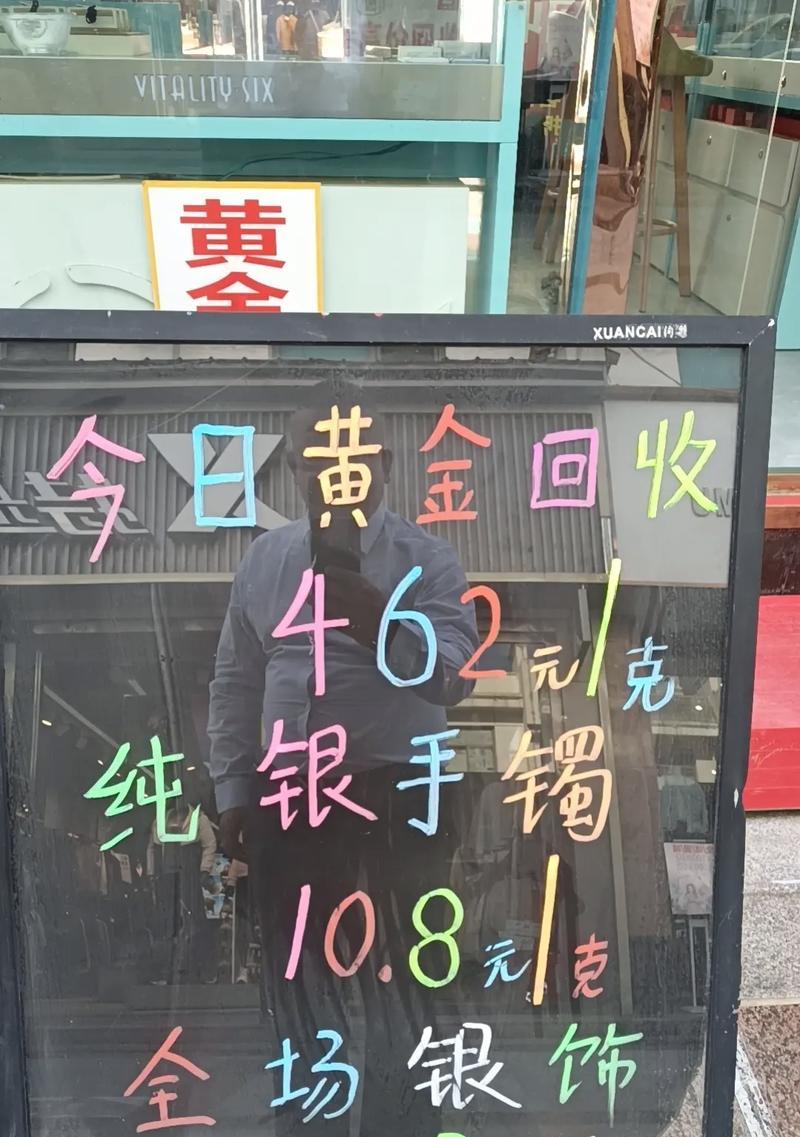 VITALITY SIX
黄
金
XUANCAI
今日黄金回收
462元/克
纯银手镯
10.8元/克
全场银饰